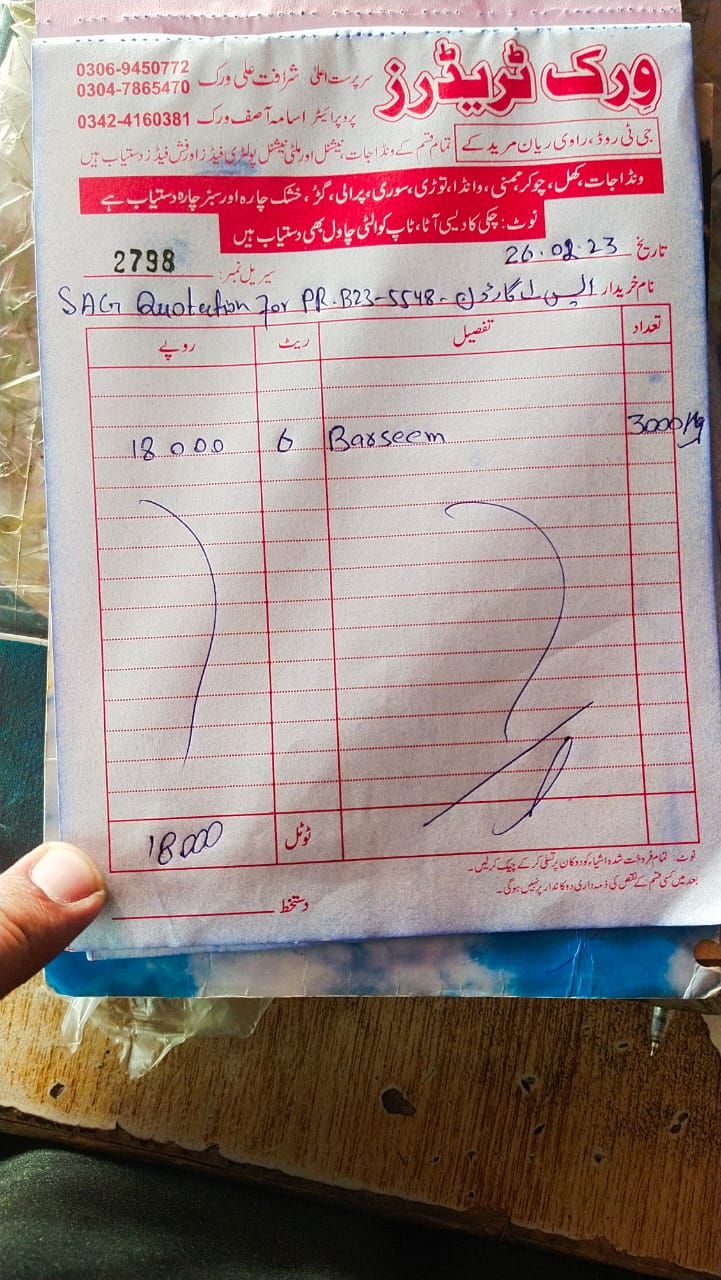 ورک ٹریڈرز
0306-9450772
0304-7865470 سرپرست اعلیٰ شرافت علی ورک
پروپرائیٹر اسامہ آصف ورک 0342-4160381
جی ٹی روڈ، راوی ریان مریدکے
تمام قسم کے ونڈا جات، نیشنل اور ملٹی نیشنل پولٹری فیڈز اور فش فیڈز دستیاب ہیں
ونڈا جات، کھل، چوکر، وانڈا، توڑی، سوری، پرالی، گڑ، خشک چارہ اور سبز چارہ دستیاب ہے
نوٹ: چکی کا دیسی آٹا، ٹاپ کوالٹی چاول بھی دستیاب ہیں
تاریخ 26.02.23
سیریل نمبر: 2798
نام خریدار ایس اے گارڈن SAG Quotation For PR.B23-5548-
تعداد تفصیل ریٹ روپے
3000 Kg Barseem 6 18000
ٹوٹل 18000
نوٹ: تمام فروخت شدہ اشیاء کو دوکان پر تسلی کر کے چیک کر لیں۔
بعد میں کسی قسم کے نقص کی ذمہ داری دوکاندار پر نہیں ہوگی۔
دستخط